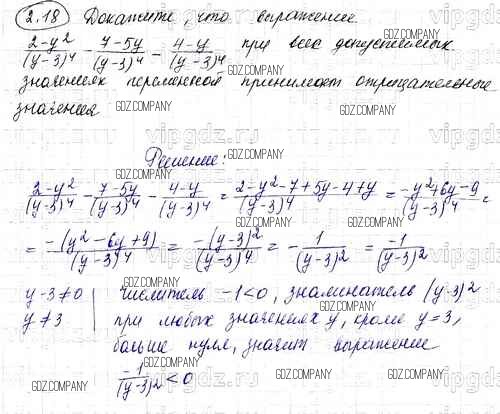 2.18 Докажите, что выражение
(2-y²)/(y-3)⁴ - (7-5y)/(y-3)⁴ - (4-y)/(y-3)⁴ при всех допустимых
значениях переменной принимает отрицательные
значения
Решение:
(2-y²)/(y-3)⁴ - (7-5y)/(y-3)⁴ - (4-y)/(y-3)⁴ = (2-y²-7+5y-4+y)/(y-3)⁴ = (-y²+6y-9)/(y-3)⁴ =
= -(y²-6y+9)/(y-3)⁴ = -(y-3)²/(y-3)⁴ = - 1/(y-3)² = -1/(y-3)²
y-3≠0 | Числитель -1<0, знаменатель (y-3)²
y≠3 | при любых значениях y, кроме y=3,
больше нуля, значит выражение
-1/(y-3)² < 0